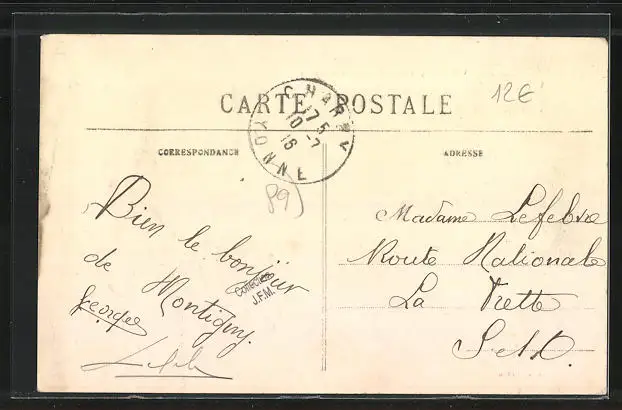 CARTE POSTALE
12€
CHARNY
17 5
10 - 7
16
YONNE
89
CORRESPONDANCE
ADRESSE
Bien le bonjour
de Montigny.
Georges
Collection
J.F.M.
Madame Lefebvre
Route Nationale
La Frette
S. et O.